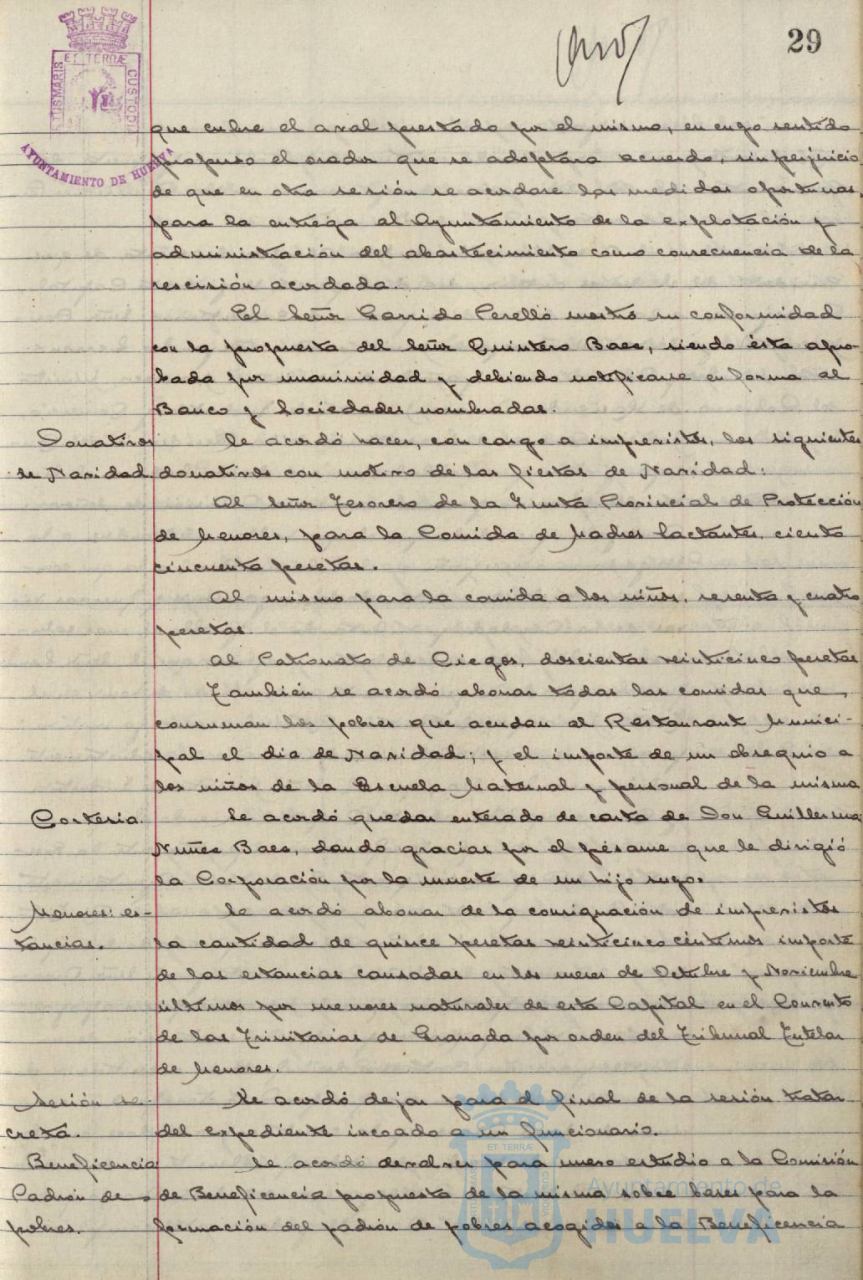 29
ET TERRÆ
CUSTODI
AYUNTAMIENTO DE HUELVA
que cubre el aval prestado por el mismo, en cuyo sentido
propuso el orador que se adoptara acuerdo, sin perjuicio
de que en otra sesión se acordase las medidas oportunas,
para la entrega al Ayuntamiento de la explotación y
administración del abastecimiento como consecuencia de la
rescisión acordada.
El Señor Garrido Perelló mostró su conformidad
con la propuesta del Señor Quintero Baez, siendo ésta apro-
bada por unanimidad y debiendo notificarse en forma al
Banco y Sociedades nombradas.
Donativos
de Navidad.
Se acordó hacer, con cargo a imprevistos, los siguientes
donativos con motivo de las fiestas de Navidad:
Al Señor Tesorero de la Junta Provincial de Protección
de Menores, para la Comida de Madres lactantes, ciento
cincuenta pesetas.
Al mismo para la comida a los niños, sesenta y cuatro
pesetas.
Al Patronato de Ciegos, doscientas veinticinco pesetas
También se acordó abonar todas las comidas que,
consuman los pobres que acudan al Restaurant Munici-
pal el dia de Navidad; y el importe de un obsequio a
los niños de la Escuela Maternal y personal de la misma
Cortesia.
Se acordó quedar enterado de carta de Don Guillermo
Nuñez Baez, dando gracias por el pésame que le dirigió
la Corporación por la muerte de un hijo suyo.
Menores: es-
tancias.
Se acordó abonar de la consignación de imprevistos
la cantidad de quince pesetas veinticinco céntimos importe
de las estancias causadas en los meses de Octubre y Noviembre
últimos por menores naturales de esta Capital en el Convento
de las Trinitarias de Granada por orden del Tribunal Tutelar
de Menores.
Sesión se-
creta.
Se acordó dejar para el final de la sesión tratar
del expediente incoado a un funcionario.
Beneficencia
Padrón de
pobres.
Se acordó devolver para nuevo estudio a la Comisión
de Beneficencia propuesta de la misma sobre bases para la
formación del padrón de pobres acogidos a la Beneficencia
ET TERRÆ
Ayuntamiento de
HUELVA